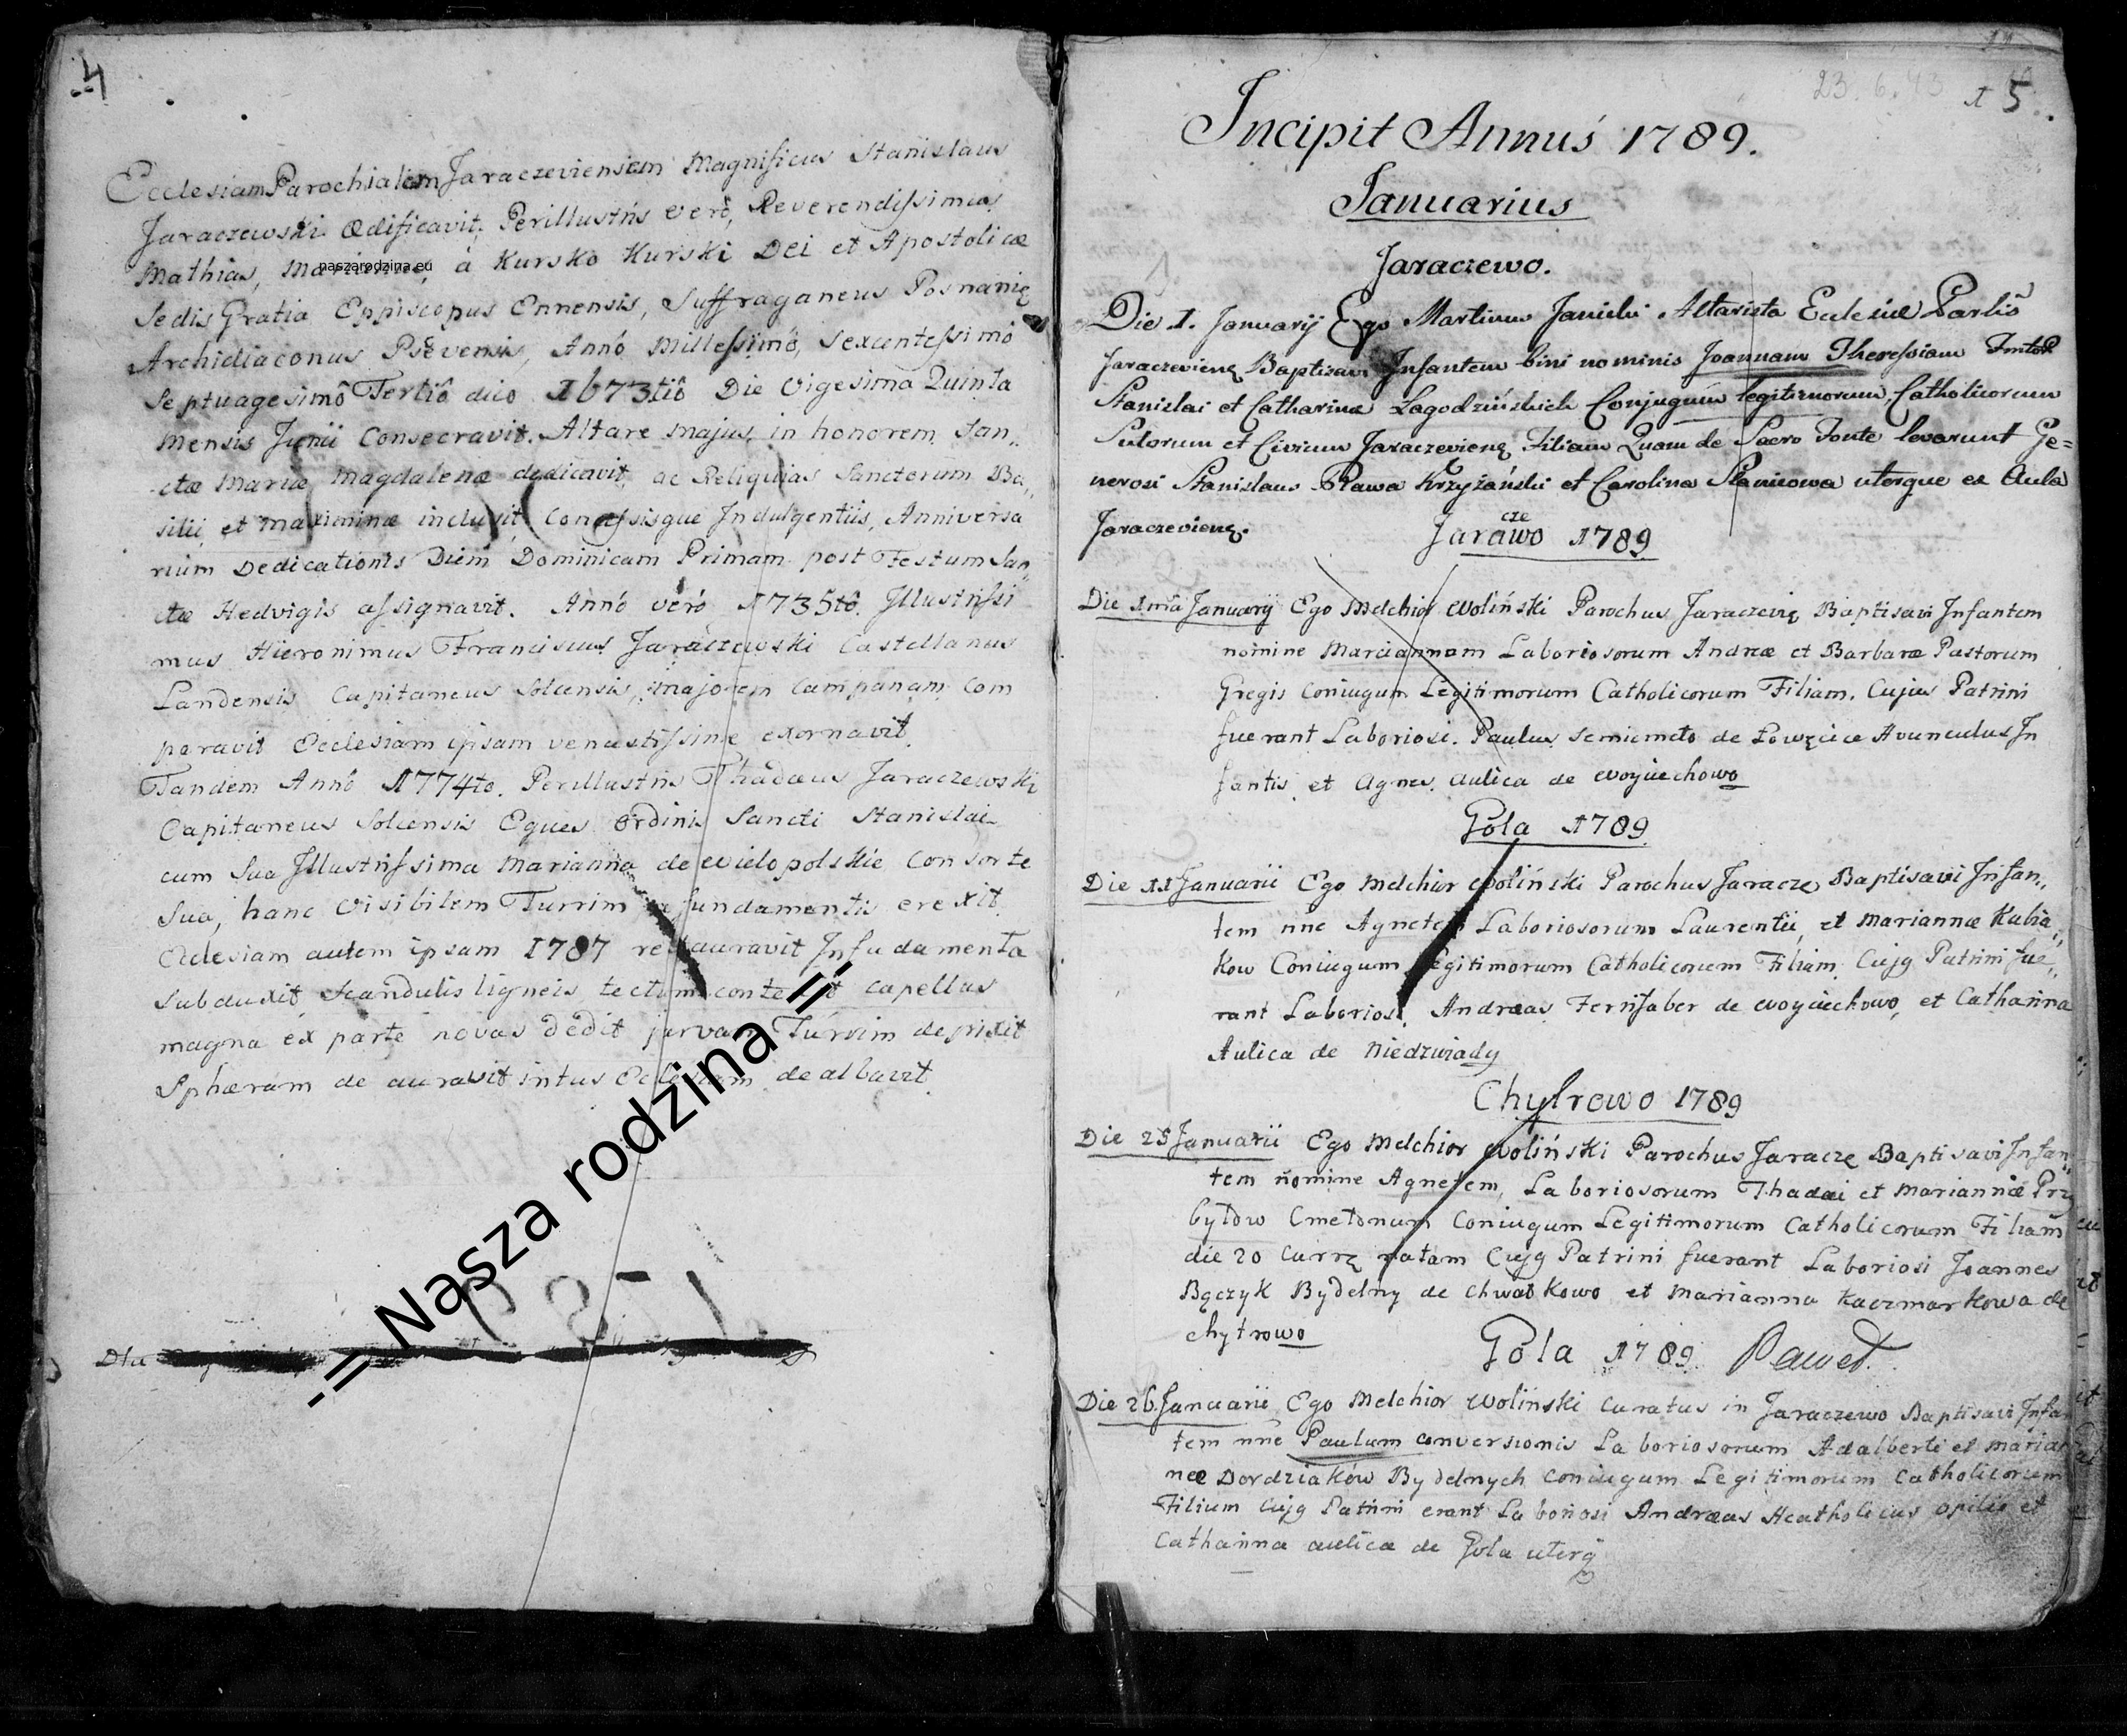 4
Ecclesiam Parochialem Jaraczeviensem Magnificus Stanislaus
Jaraczewski Ædificavit, Perillustris verò, Reverendissimus
Mathias, à Kursko Kurski Dei et Apostolicæ
naszarodzina.eu
Sedis Gratia Eppiscopus Ennensis, Suffraganeus Posnanię
Archidiaconus Psčvensis, Annô Millessimô, sexcentessimô
Septuagesimô Tertiô dico 1673tiô Die Vigesima Quinta
Mensis Junii Consecravit. Altare majus, in honorem San„
ctæ Mariæ Magdalenæ dedicavit, ac Reliquias Sanctorum Ba„
silii, et Maximinæ inclusit, Concessisque Indulgentiis, Anniversa
rium Dedicationis Diem Dominicam Primam post Festum San„
ctæ Hedvigis assignavit. Annô verò 1735tô. Illustrissi
mus Hieronimus Franciscus Jaraczewski Castellanus
Landensis Capitaneus Solcensis, majorem campanam com
paravit Ecclesiam ipsam venustissime exornavit.
Tandem Annô 1774to. Perillustris Thadæus Jaraczewski
Capitaneus Solcensis Eques Ordinis Sancti Stanislai
cum Sua Illustrissima Marianna de Wielopolskie Consorte
Sua, hanc Visibilem Turrim fundamentis erexit
Ecclesiam autem ipsam 1787 restauravit Infudamenta
Subduxit, Scandulis ligneis, tectum contexit capellas
magna ex parte novas dedit parvam Turrim depinxit
Sphæram de auravit intus Ecclesiam dealbavit
-= Nasza rodzina =-
Dla
23.6.43
1 5.
Incipit Annus 1789.
Januarius
Jaraczewo.
Die 1. Januarij Ego Martinus Janicki Altarista Ecclesiæ Parlis
Jaraczevienę Baptisavi Infantem bini nominis Joannam Theressiam Fmtos
Stanislai et Catharinæ Lagodzińskich Conjugum legitimorum, Catholicorum
Sutorum et Civium Jaraczevienę Filiam Quam de Sacro Fonte levarunt Ge=
nerosi Stanislaus Rawa Krzyżański et Carolina Slawicowa uterque ex Aula
Jaraczevienę.
Jaraczewo 1789
Die 1ma Januarij Ego Melchior Woliński Parochus Jaraczevię Baptisavi Infantem
nomine Mariannam Laboriosorum Andreæ et Barbaræ Pastorum
Gregis Coniugum Legitimorum Catholicorum Filiam. Cujus Patrini
fuerant Laboriosi. Paulus Semicmeto de Łowęcice Avunculus In
fantis et Agnes. Aulica de Woyciechowo
Gola 1789
Die 11 Januarii Ego Melchior Woliński Parochus Jaraczę Baptisavi Infan„
tem nne Agnetem Laboriosorum Laurentii, et Mariannæ Kubia„
kow Coniugum Legitimorum Catholicorum Filiam. Cujq Patrini fue„
rant Laboriosi. Andræas Ferrifaber de Woyciechowo, et Catharina
Aulica de Niedzwiady
Chytrowo 1789
Die 25 Januarii Ego Melchior Woliński Parochus Jaraczę Baptisavi Infan„
tem nomine Agnetem, Laboriosorum Thadæi et Mariannæ Prz
byłow Cmetonum Coniugum Legitimorum Catholicorum Filiam
die 20 Currę natam Cujq Patrini fuerant Laboriosi Joannes
Bączyk Bydelny de Chwałkowo et Marianna Kaczmarkowa de
Chytrowo
Gola 1789. Paweł.
Die 26. Januarii Ego Melchior Woliński Curatus in Jaraczewo Baptisavi Infan
tem nne Paulum conversionis Laboriosorum Adalberti et Marian
næ Dordziaków Bydelnych Coniugum Legitimorum Catholicorum
Filium Cujq Patrini erant Laboriosi Andræas Acatholicus opilio et
Catharina aulica de Gola uterq